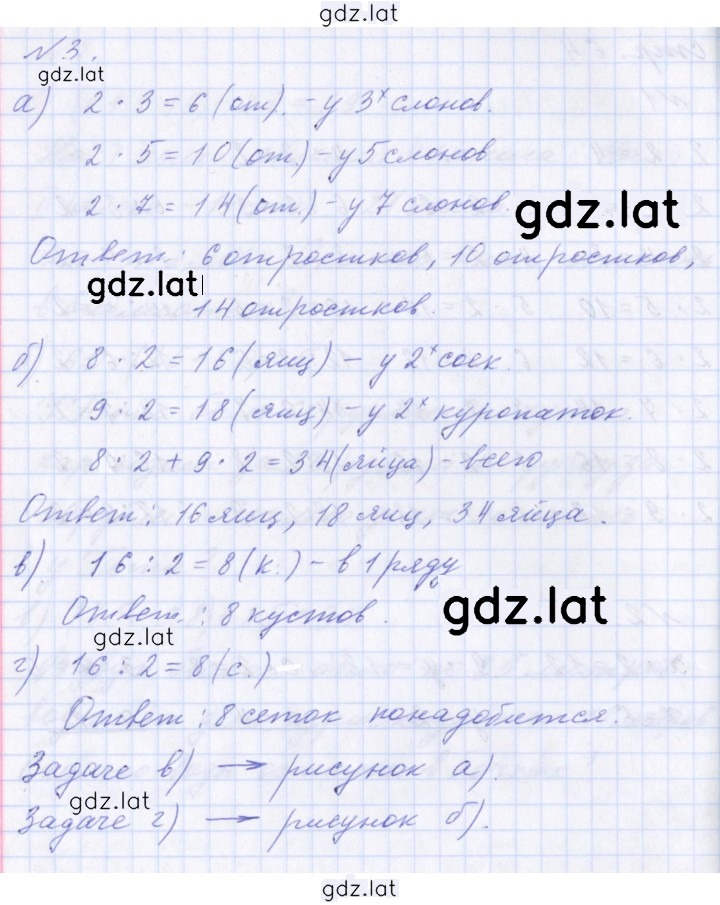 gdz.lat
№ 3.
gdz.lat
а) 2 · 3 = 6 (от). – у 3х слонов.
2 · 5 = 10 (от.) – у 5 слонов
2 · 7 = 14 (от.) – у 7 слонов.
gdz.lat
Ответ: 6 отростков, 10 отростков,
gdz.lat
14 отростков.
б) 8 · 2 = 16 (яиц) – у 2х соек.
9 · 2 = 18 (яиц) – у 2х куропаток.
8 · 2 + 9 · 2 = 34 (яйца) – всего
Ответ: 16 яиц, 18 яиц, 34 яйца.
в) 16 : 2 = 8 (к.) – в 1 ряду
Ответ: 8 кустов.
gdz.lat
gdz.lat
г) 16 : 2 = 8 (с.)
Ответ: 8 сеток понадобится.
Задаче в) → рисунок а).
gdz.lat
Задаче г) → рисунок б).
gdz.lat